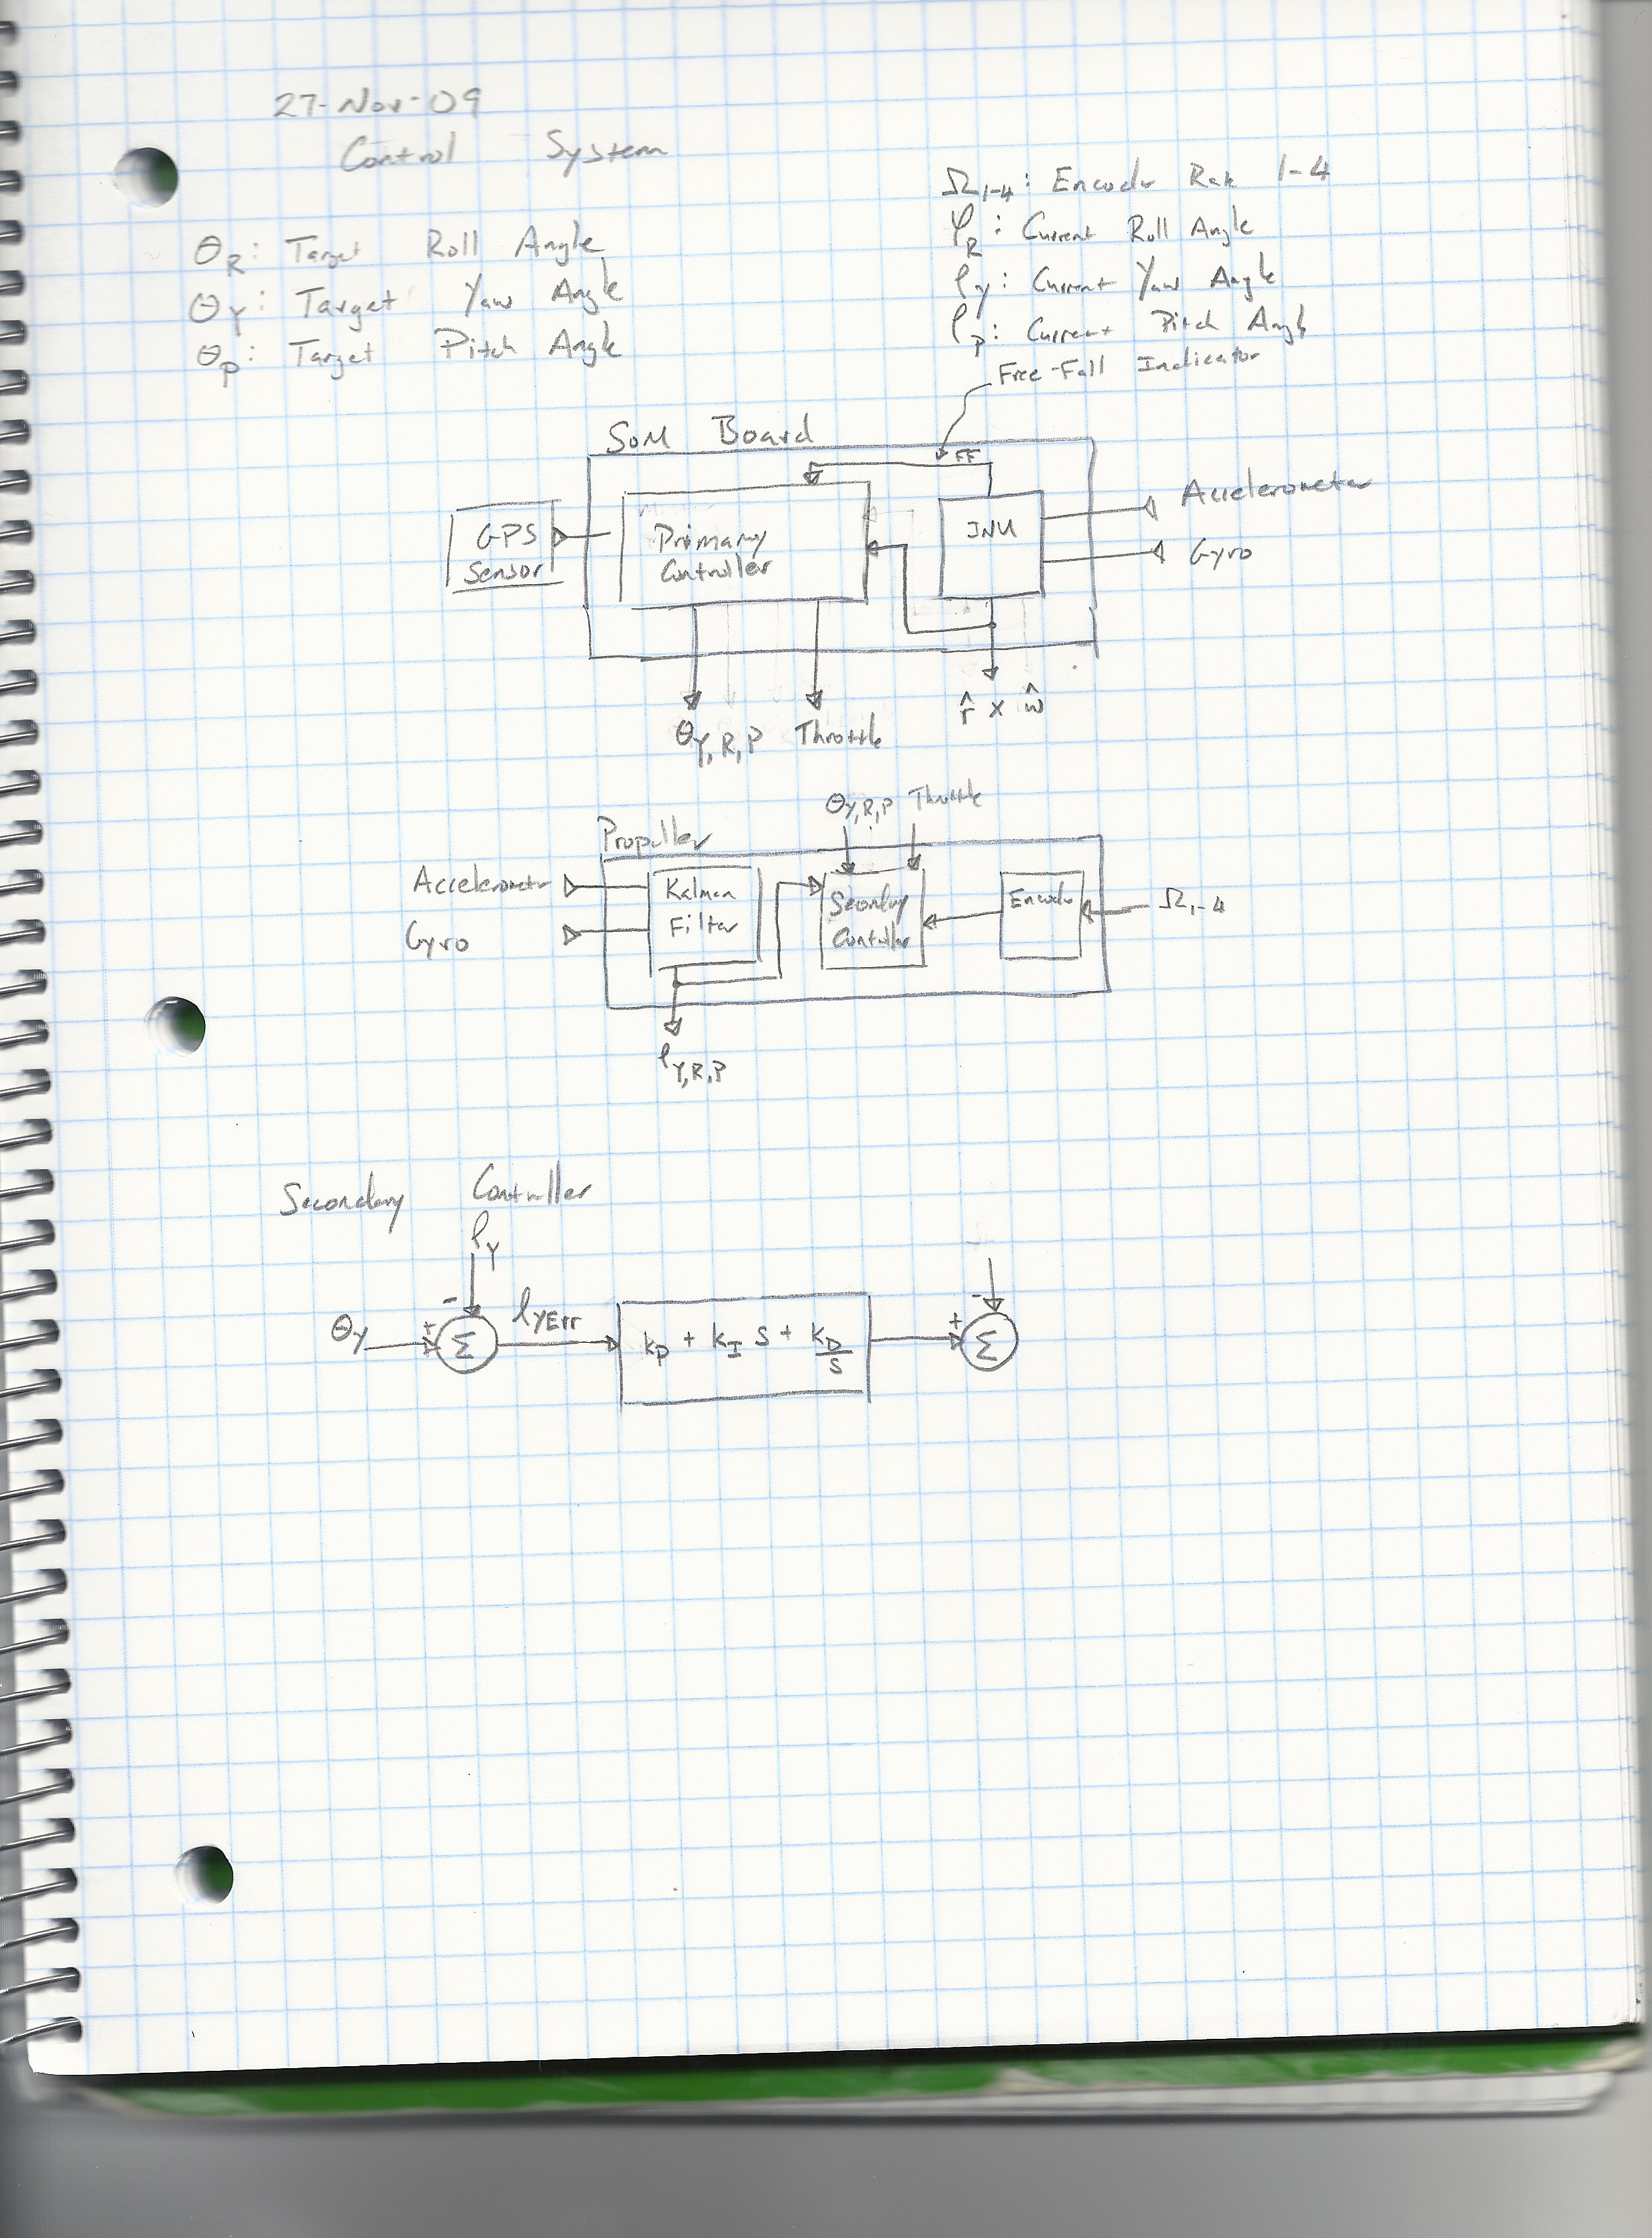 27-Nov-09
Control System
θR: Target Roll Angle
θY: Target Yaw Angle
θP: Target Pitch Angle
Ω1-4: Encoder Rate 1-4
φR: Current Roll Angle
ρY: Current Yaw Angle
ρP: Current Pitch Angle
Free-Fall Indicator
SOM Board
FF
GPS
Sensor
Primary
Controller
INU
Accelerometer
Gyro
θY,R,P Throttle
r̂ x ŵ
θY,R,P Throttle
Propeller
Accelerometer
Gyro
Kalman
Filter
Secondary
Controller
Encoder
Ω1-4
ρY,R,P
Secondary Controller
ρY
-
θY + Σ ρYErr
kP + kI S + kD/S
-
+ Σ